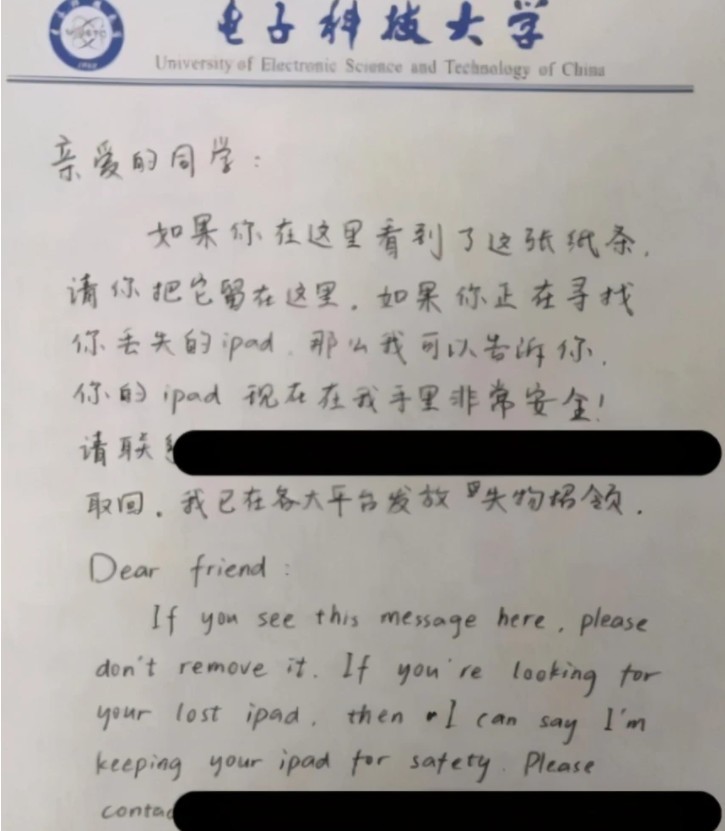 电子科技大学
University of Electronic Science and Technology of China
1956
亲爱的同学：
如果你在这里看到了这张纸条，
请你把它留在这里。如果你正在寻找
你丢失的ipad，那么我可以告诉你，
你的ipad 现在在我手里非常安全！
请联系
取回。我已在各大平台发放 失物招领．
Dear friend :
If you see this message here, please
don't remove it. If you're looking for
your lost ipad, then I can say I'm
keeping your ipad for safety. Please
contac